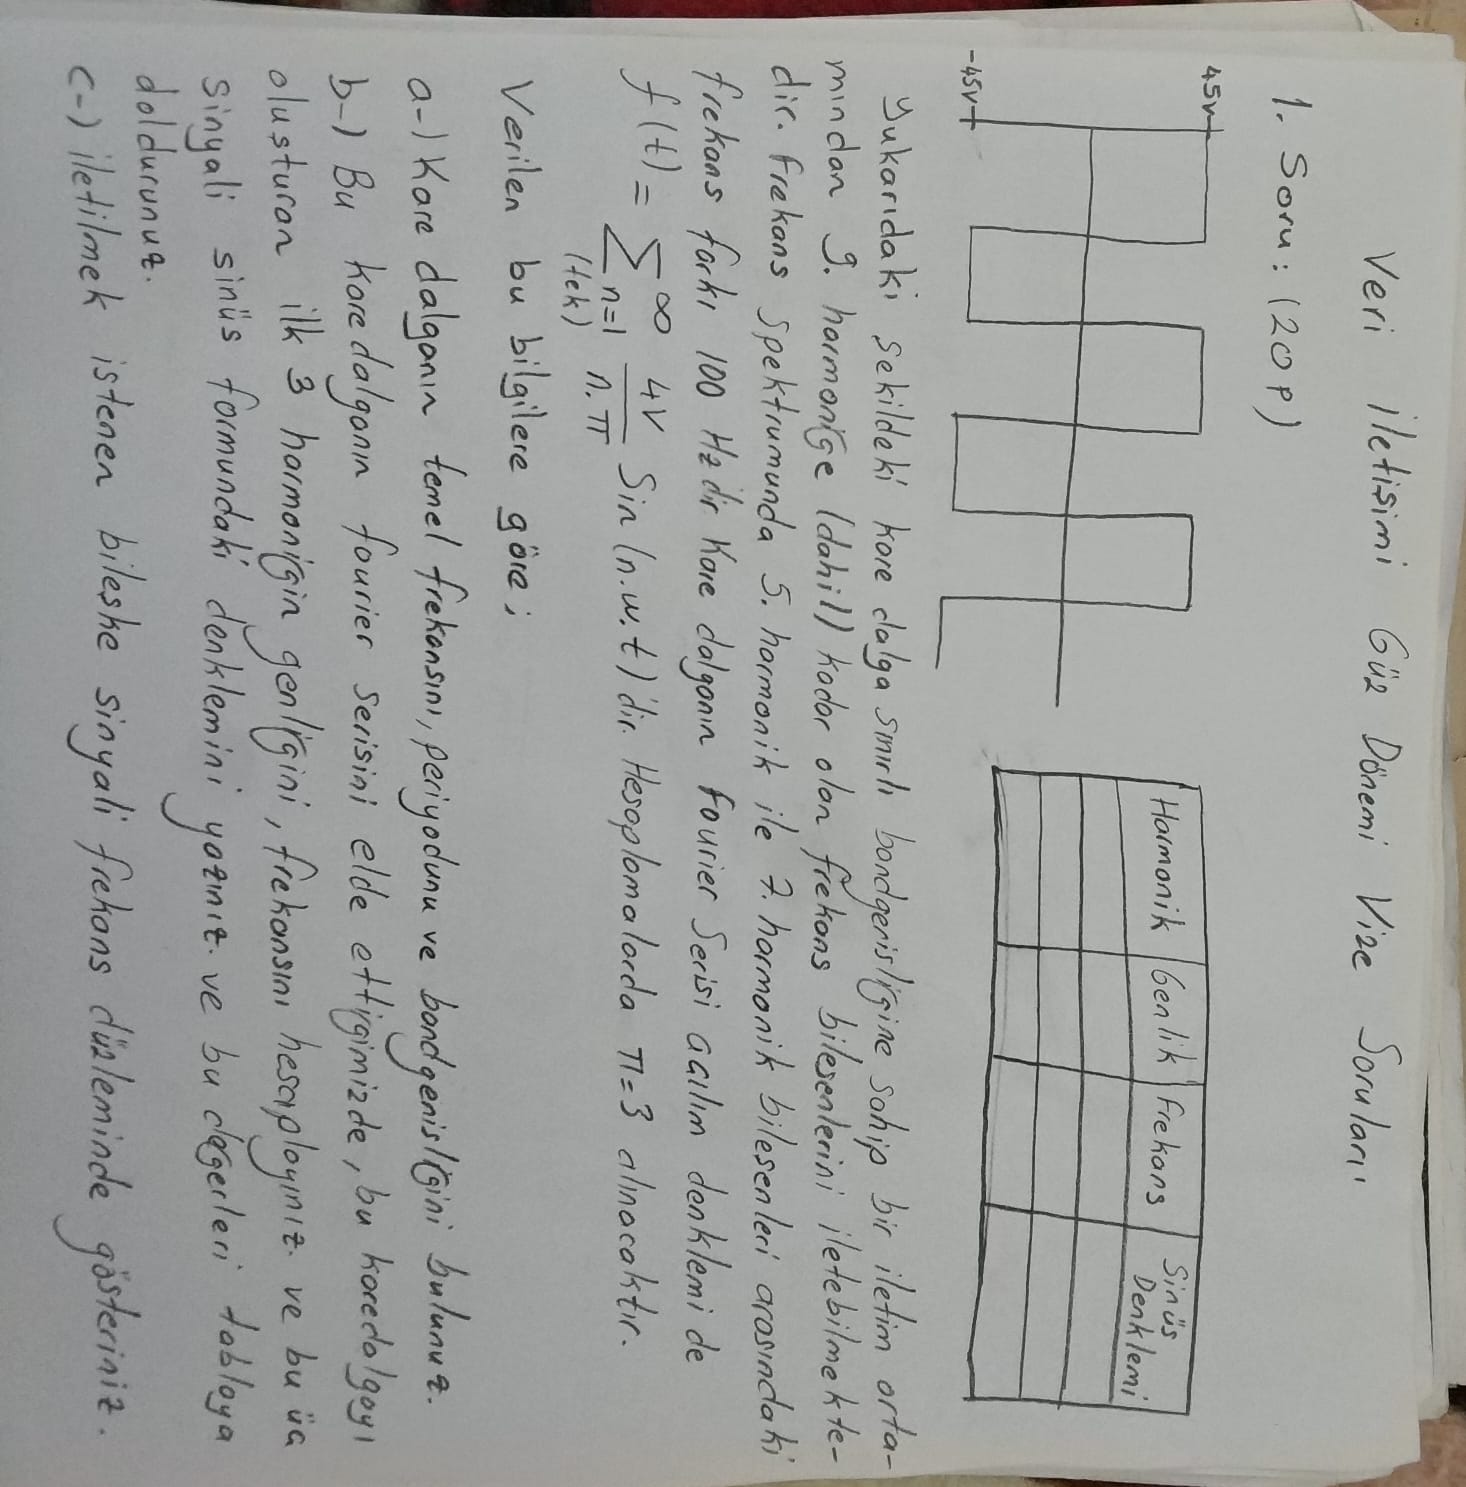 Veri iletişimi Güz Dönemi Vize Soruları
1. Soru: (20 p)
45V
-45V
Harmonik Genlik Frekans Sinüs Denklemi
Yukarıdaki şekildeki kare dalga sınırlı bandgenişliğine sahip bir iletim orta-
mından 9. harmoniğe (dahil) kadar olan frekans bileşenlerini iletebilmekte-
dir. Frekans spektrumunda 5. harmonik ile 7. harmonik bileşenleri arasındaki
frekans farkı 100 Hz dir Kare dalganın Fourier Serisi açılım denklemi de
f(t) = ∑ n=1 (tek) ∞ 4V / n.π Sin (n.w.t)'dir. Hesaplamalarda π=3 alınacaktır.
Verilen bu bilgilere göre;
a-) Kare dalganın temel frekansını, periyodunu ve bandgenişliğini bulunuz.
b-) Bu kare dalganın fourier serisini elde ettiğimizde, bu karedalgayı
oluşturan ilk 3 harmoniğin genliğini, frekansını hesaplayınız. ve bu üç
sinyali sinüs formundaki denklemini yazınız. ve bu değerleri tabloya
doldurunuz.
c-) iletilmek istenen bileşke sinyali frekans düzleminde gösteriniz.